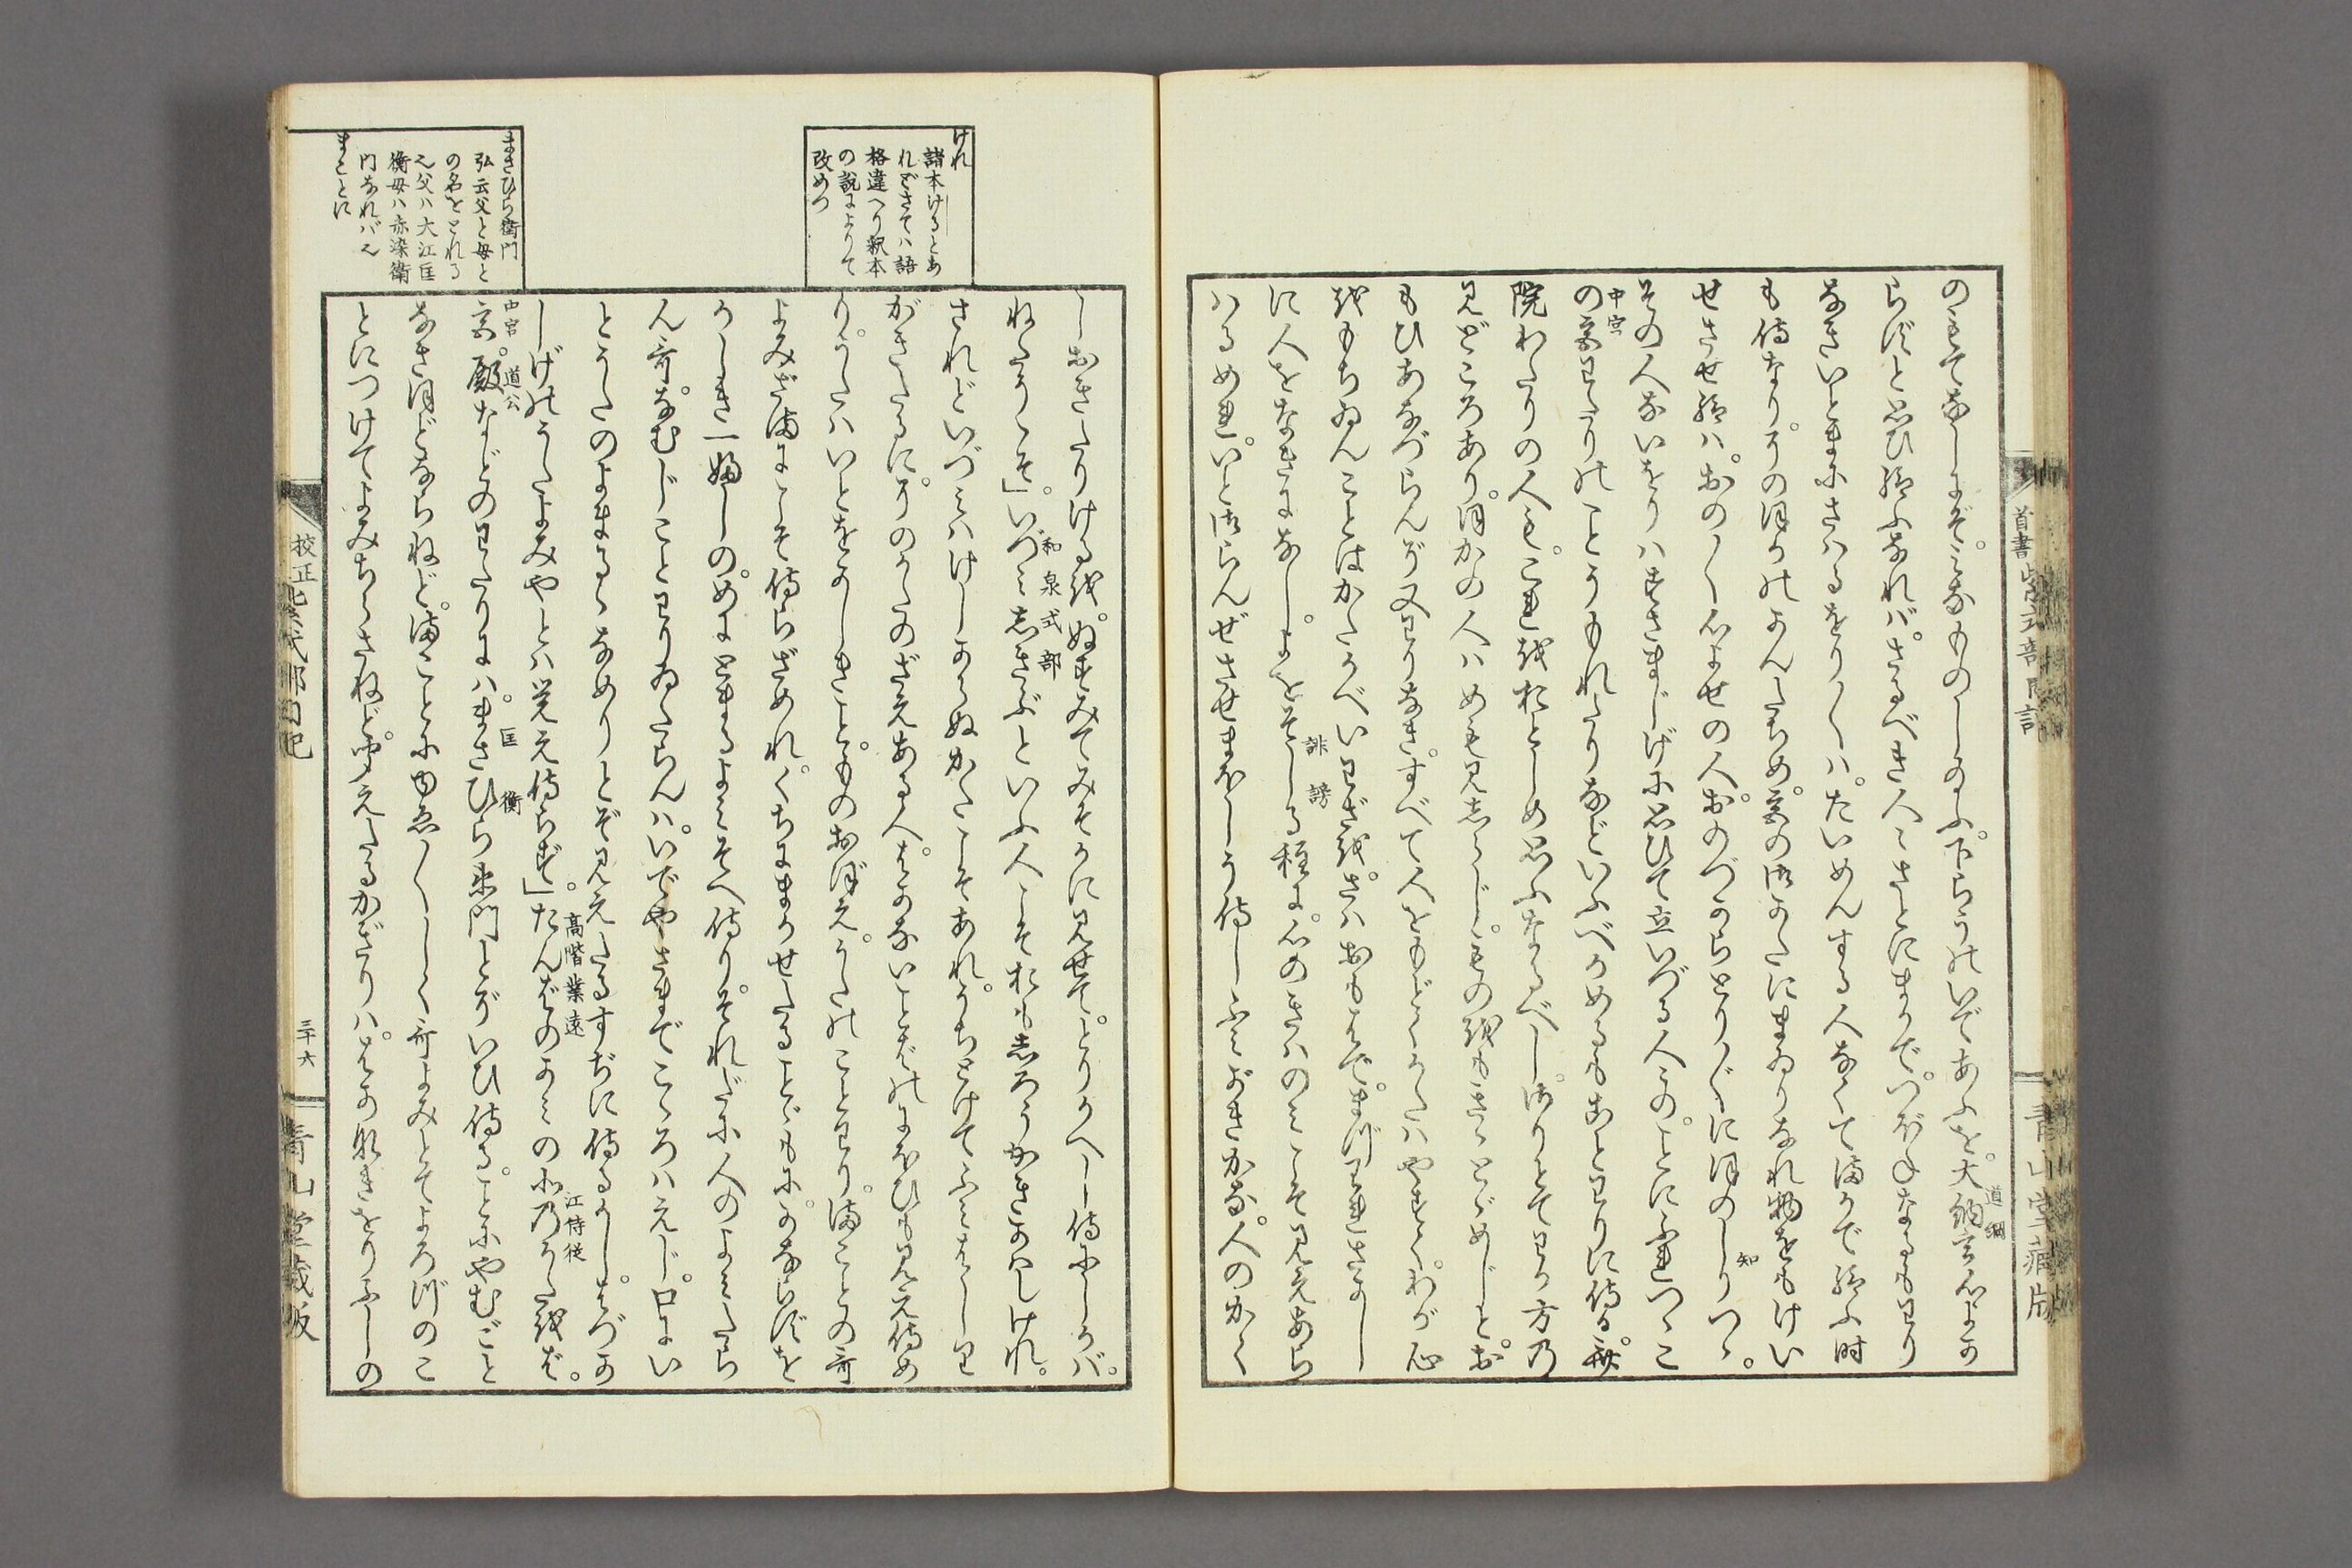 首書紫式部日記
青山堂蔵版
のもてなしにぞ。みなものしたまふ。下らうのいであふを。大納言心よか
道綱
らずと思ひ給ふなれバ。さるべき人〻さとにまかで。つぼねなるもわり
なきいとまにさハるをり〳〵ハ。たいめんする人なくてまかで給ふ時
も侍なり。そのほかのかんだちめ。宮の御かたにまゐりなれ物をもけい
せさせ給ハ。おの〳〵心よせの人。おのづからとり〴〵にほのしりつゝ。
知
その人ないをりハすさまじげに思ひて立いづる人〻の。ことにふれつゝこ
中宮
の宮わたりのことうもれたりなどいふべかめるもことわりに侍る。斎
院わたりの人も。これをおとしめ思ふなるべし。さりとてわが方の
見どころあり。ほかの人ハめも見しらじ。ものをもきゝとゞめじと。お
もひあなづらんぞ又わりなき。すべて人をもどくかたハやすく。わが心
をもちゐんことはかたかべいわざを。さハおもはで。まづわれさかし
誹謗
に人をなきになし。よをそしる程に。心のきハのミこそ見えあら
ハるめれ。いと御らんぜさせまほしう侍しふミがきかな。人のかく
けれ
諸本けるとあ
れどさてハ語
格違へり釈本
の説によりて
改めつ
まさひら衛門
弘云父と母と
の名をとれる
也父ハ大江匡
衡母ハ赤染衛
門なれバ也
まことに
しおきたりけるを。ぬすみてみそかに見せて。とりかへし侍にしかバ。
和泉式部
ねたうこそ」。いづミしきぶといふ人こそおもしろうかきかはしけれ。
されどいづミハけしからぬかたこそあれ。うちとけてふミはしり
がきたるに。そのかたのざえある人。はかないことばのにほひも見え侍め
り。うたハいとをかしきこと。ものおぼえ。うたのことわり。まことの哥
よみざまにこそ侍らざめれ。くちにまかせたることゞもに。かならずを
かしき一ふしの。めにとまるよミそへ侍り。それだに人のよミたら
ん哥。なむじことわりゐたらんハ。いでやさまでこゝろハえじ。口にい
とうたのよまるゝなめりとぞ見えたるすぢに侍るかし。はづか
高階業遠
江侍従
しげのうたよみやとハ覚え侍らず」。たんばのかミの北のかたをば。
中宮 道公
匡衡
宮。殿などのわたりにハ。まさひら衛門とぞいひ侍る。ことにやむごと
なきほどならねど。まことにゆゑ〳〵しく哥よみとてよろづのこ
とにつけてよみちらさねど。聞えたるかぎりハ。はかなきをりふしの
校正紫式部日記
三十六
青山堂蔵版